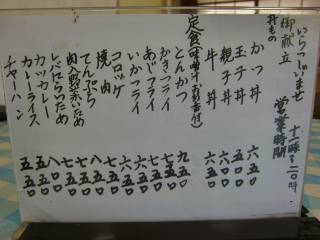 いらっしゃいませ
営業時間
十二時〜二〇時
御献立
丼もの
かつ丼 六五〇
玉子丼 五五〇
親子丼 六〇〇
牛丼 六五〇
定食(味噌汁・お新香付)
とんかつ 九五〇
かきフライ
あじフライ
いかフライ
コロッケ
焼肉
てんぷら
肉入野菜いため
レバにらいため
カツカレー 八〇〇
カレーライス 五五〇
チャーハン 五五〇